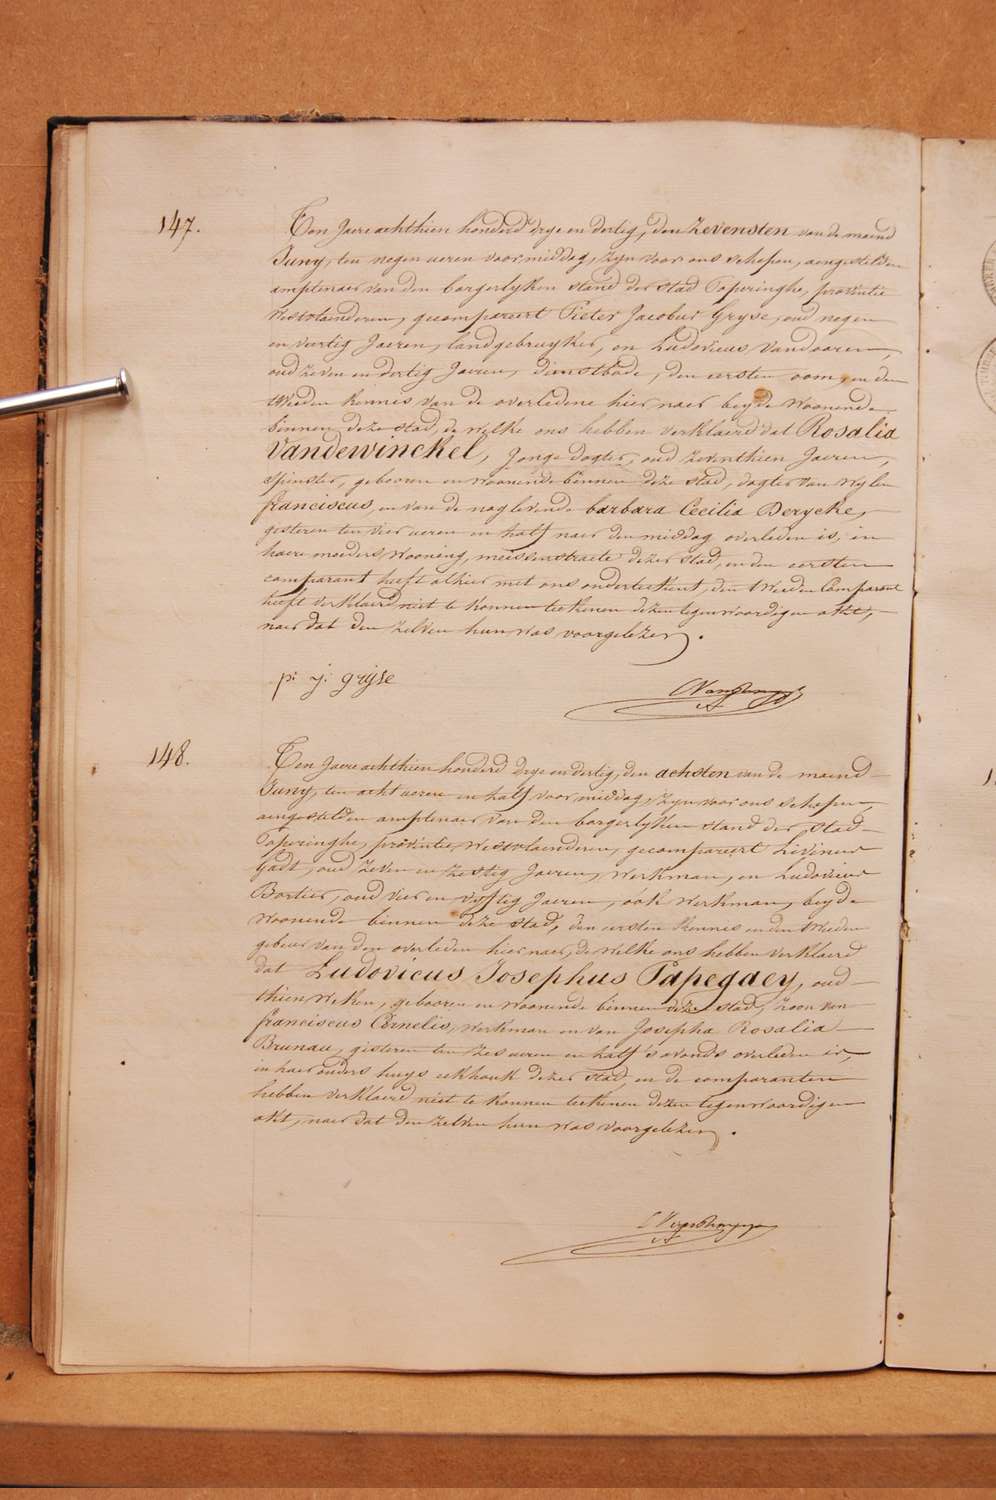 147.
Ten Jaere achthien honderd drye en dertig, den zevensten van de maend
Juny, ten negen ueren voormiddag, zyn voor ons schepen, aengestelden
amptenaer van den borgerlyken stand der stad Poperinghe, provintie
Westvlaenderen, gecompareert Pieter Jacobus Gryse, oud negen
en veertig Jaeren, landgebruyker, en Ludovicus Vandooren,
oud zeven en dertig Jaeren, dienstbode, den eersten oom, en den
tweeden kennis van de overledene hier naer beyde woonende
binnen deze stad, de welke ons hebben verklaerd dat Rosalia
Vandewinckel, jonge dogter, oud zeventhien Jaeren,
spinster, gebooren en woonende binnen deze stad, dogter van wylen
franciscus, en van de naglevende barbara Cecilia Derycke,
gisteren ten vier ueren en half naer den middag overleden is, in
haere moeders wooning, meissenstraete dezer stad, en den eersten
comparant heeft alhier met ons onderteekent, den tweeden Comparant
heeft verklaerd niet te konnen teekenen dezen tegenwoordigen akt,
naer dat den zelven hun was voorgelezen.
p: j: gryse
148.
Ten Jaere achthien honderd drye en dertig, den achsten van de maend
Juny, ten acht ueren en half voormiddag, zyn voor ons schepen,
aengestelden amptenaer van den borgerlyken stand der stad
Poperinghe, provintie Westvlaenderen, gecompareert Livinus
oud zeven en zestig Jaeren, werkman, en Ludovicus
Bortier, oud vier en vyftig Jaeren, ook werkman, beyde
woonende binnen deze stad, den eersten kennis en den tweeden
gebuer van den overleden hier naer, de welke ons hebben verklaerd
dat Ludovicus Josephus Papegaey, oud
thien weken, gebooren en woonende binnen deze stad, zoon van
franciscus Cornelis, werkman en van Josepha Rosalia
Brunau, gisteren ten zes ueren en half s'avonds overleden is,
in haer ouders huys eekhouk dezer stad, en de comparanten
hebben verklaerd niet te konnen teekenen dezen tegenwoordigen
akt, naer dat den zelven hun was voorgelezen.